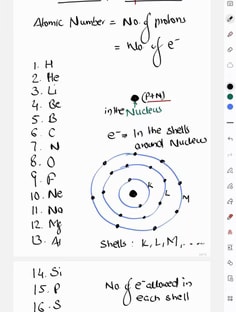 Atomic Number = No. of protons
= No of e⁻
1. H
2. He
3. Li
4. Be
5. B
6. C
7. N
8. O
9. F
10. Ne
11. Na
12. Mg
13. Al
(P+N)
in the Nucleus
e⁻ → In the shells
around Nucleus
K
L
M
Shells : K, L, M, ....
14. Si
15. P
16. S
No of e⁻ allowed in
each shell